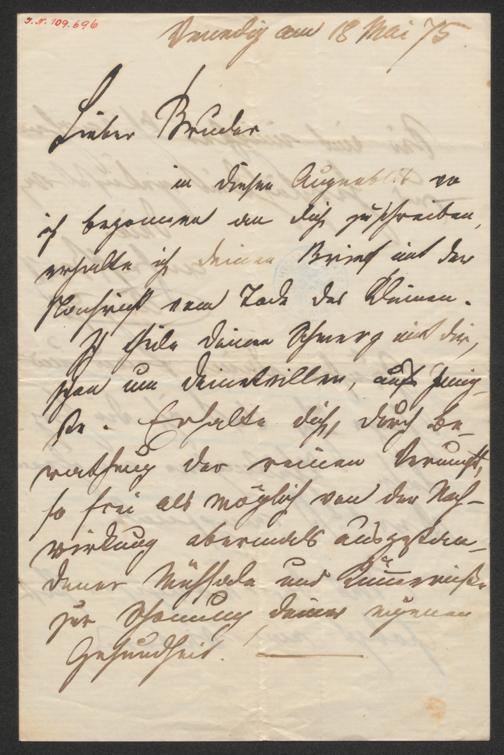 J.N. 109.696
Venedig am 18 Mai 75
Lieber Bruder
in diesem Augenblick wo
ich begonnen an dich zu schreiben,
erhalte ich deinen Brief mit der
Nachricht vom Tode des Kleinen.
Ich theile deinen Schmerz mit dir,
schon um deinetwillen, aufs Innig-
ste. Erhalte dich, durch Be-
rathung der reinen Vernunft,
so frei als möglich von der Nach-
wirkung abermals ausgestan-
dener Mühsale und Kümmerniße
zur Schonung deiner eigenen
Gesundheit.